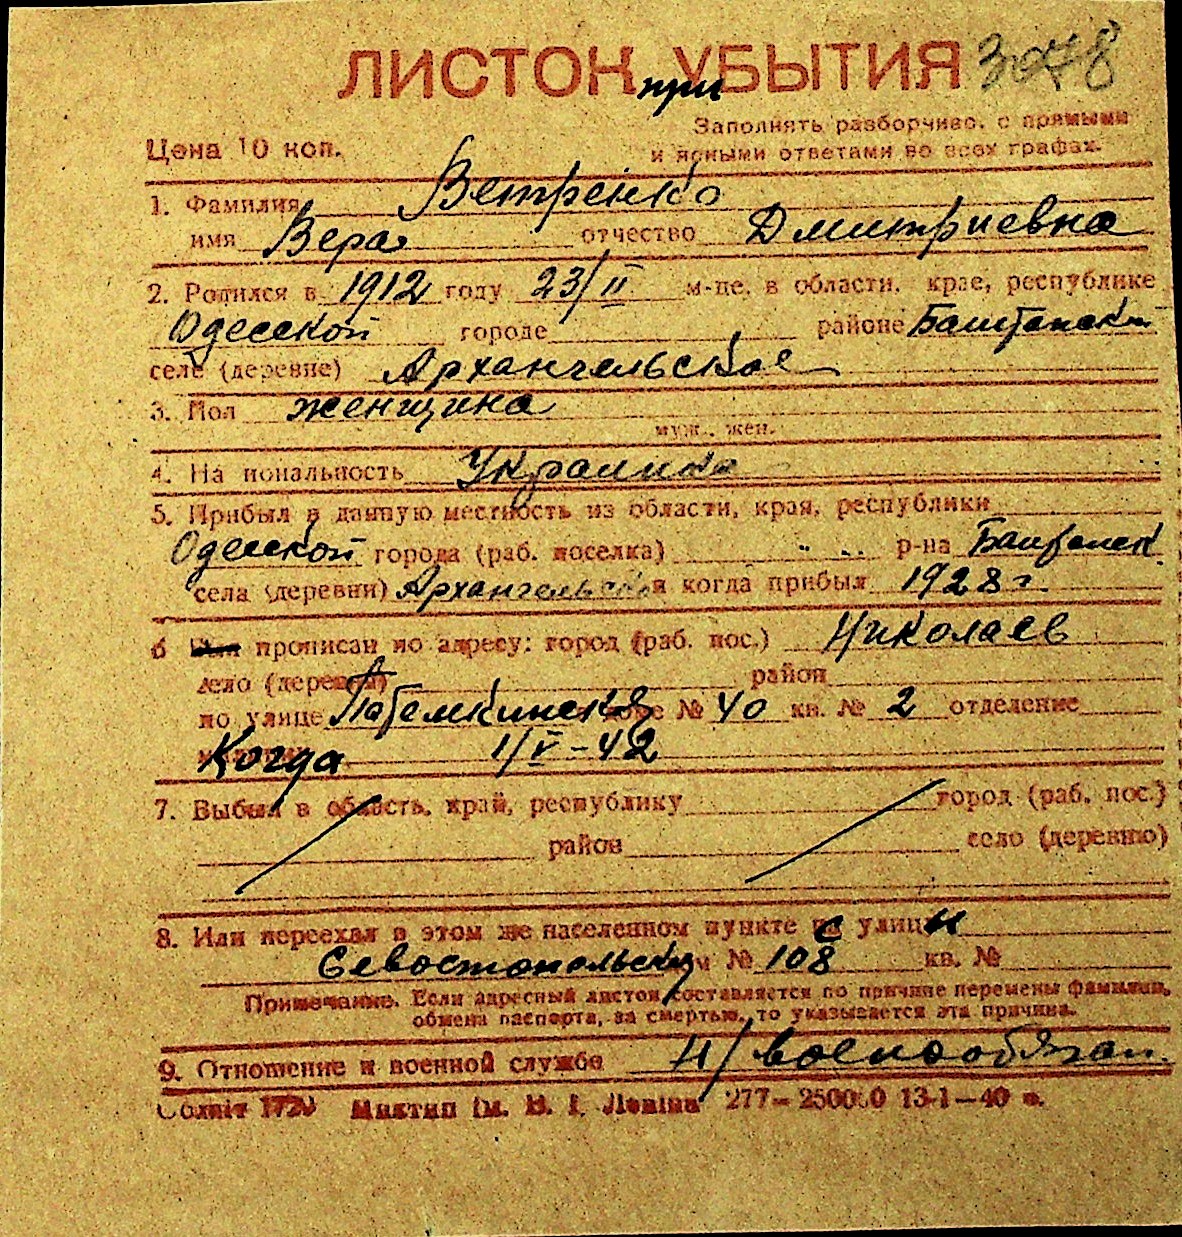 ЛИСТОК при УБЫТИЯ
Цена 10 коп.
Заполнять разборчиво, с прямыми
и ясными ответами во всех графах.
1. Фамилия Ветренко
имя Вера отчество Дмитриевна
2. Родился в 1912 году 23/II м-це, в области, крае, республике
Одесской городе районе Баштанск
селе (деревне) Архангельское
3. Пол женщина
муж., жен.
4. Национальность Украинка
5. Прибыл в данную местность из области, края, республики
Одесской города (раб. поселка) р-на Баштанск
села (деревни) Архангельской и когда прибыл 1928 г.
6 прописан по адресу: город (раб. пос.) Николаев
село (деревня) район
по улице Патемкинская доме № 40 кв. № 2 отделение
Когда 1/V-42
7. Выбыл в область, край, республику город (раб. пос.)
район село (деревню)
8. Или переехал в этом же населенном пункте с улицы
Севостопольску дом № 108 кв. №
Примечание. Если адресный листок составляется по причине перемены фамилии,
обмена паспорта, за смертью, то указывается эта причина.
9. Отношение к военной службе Н/военообязан.
Облліт Миктип ім. В. І. Леніна 277—250000 13-1—40 в.